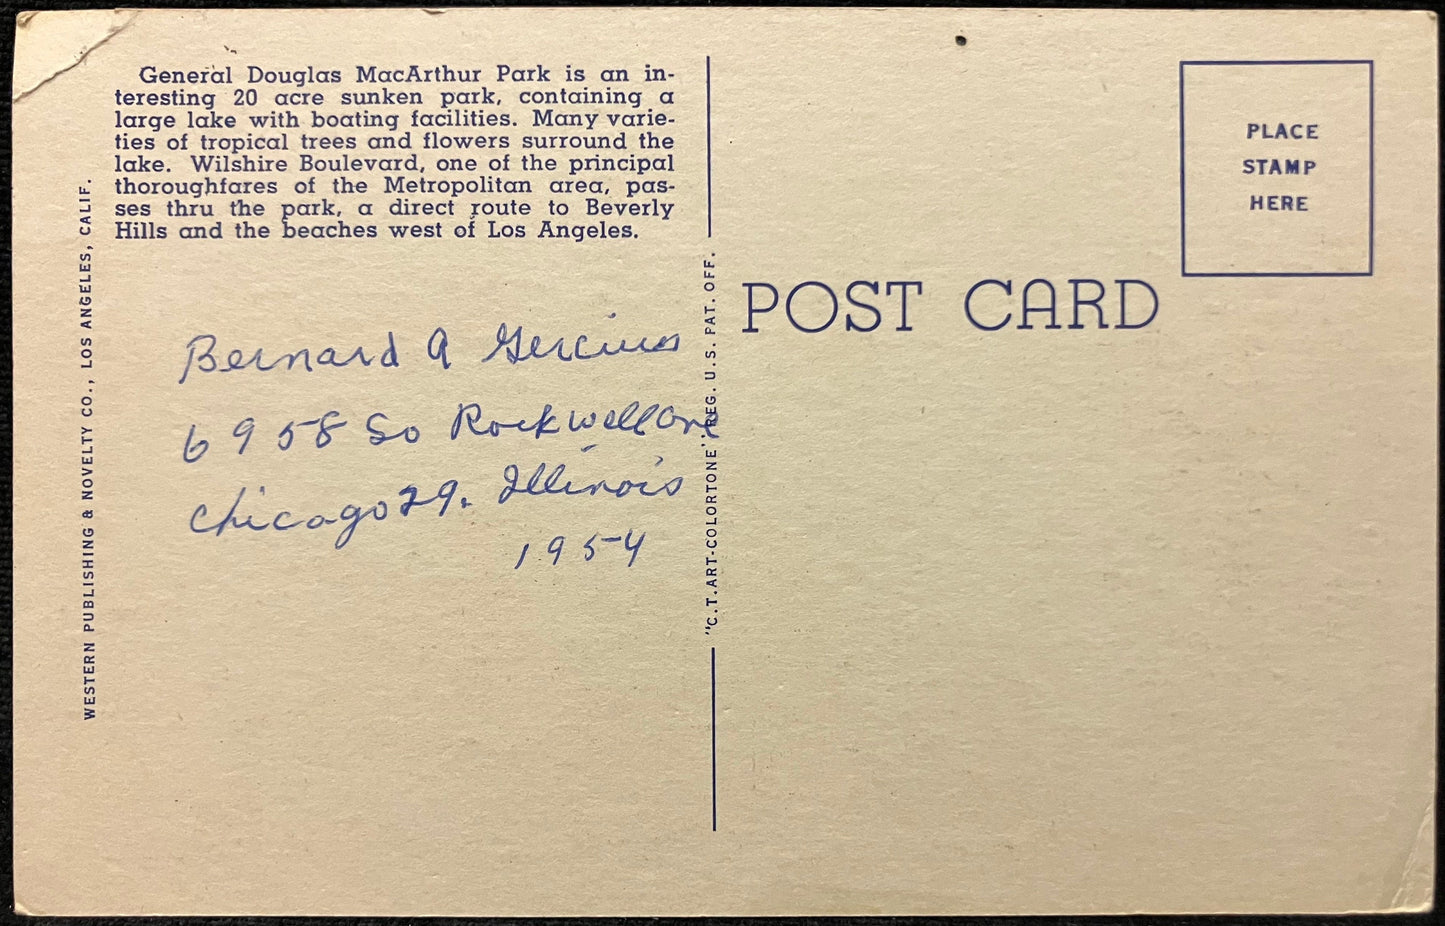 General Douglas MacArthur Park is an in-
teresting 20 acre sunken park, containing a
large lake with boating facilities. Many varie-
ties of tropical trees and flowers surround the
lake. Wilshire Boulevard, one of the principal
thoroughfares of the Metropolitan area, pas-
ses thru the park, a direct route to Beverly
Hills and the beaches west of Los Angeles.
WESTERN PUBLISHING & NOVELTY CO., LOS ANGELES, CALIF.
Bernard A Gercius
6958 So Rockwell Ave
Chicago 29. Illinois
1954
"C.T. ART-COLORTONE" REG. U.S. PAT. OFF.
POST CARD
PLACE
STAMP
HERE